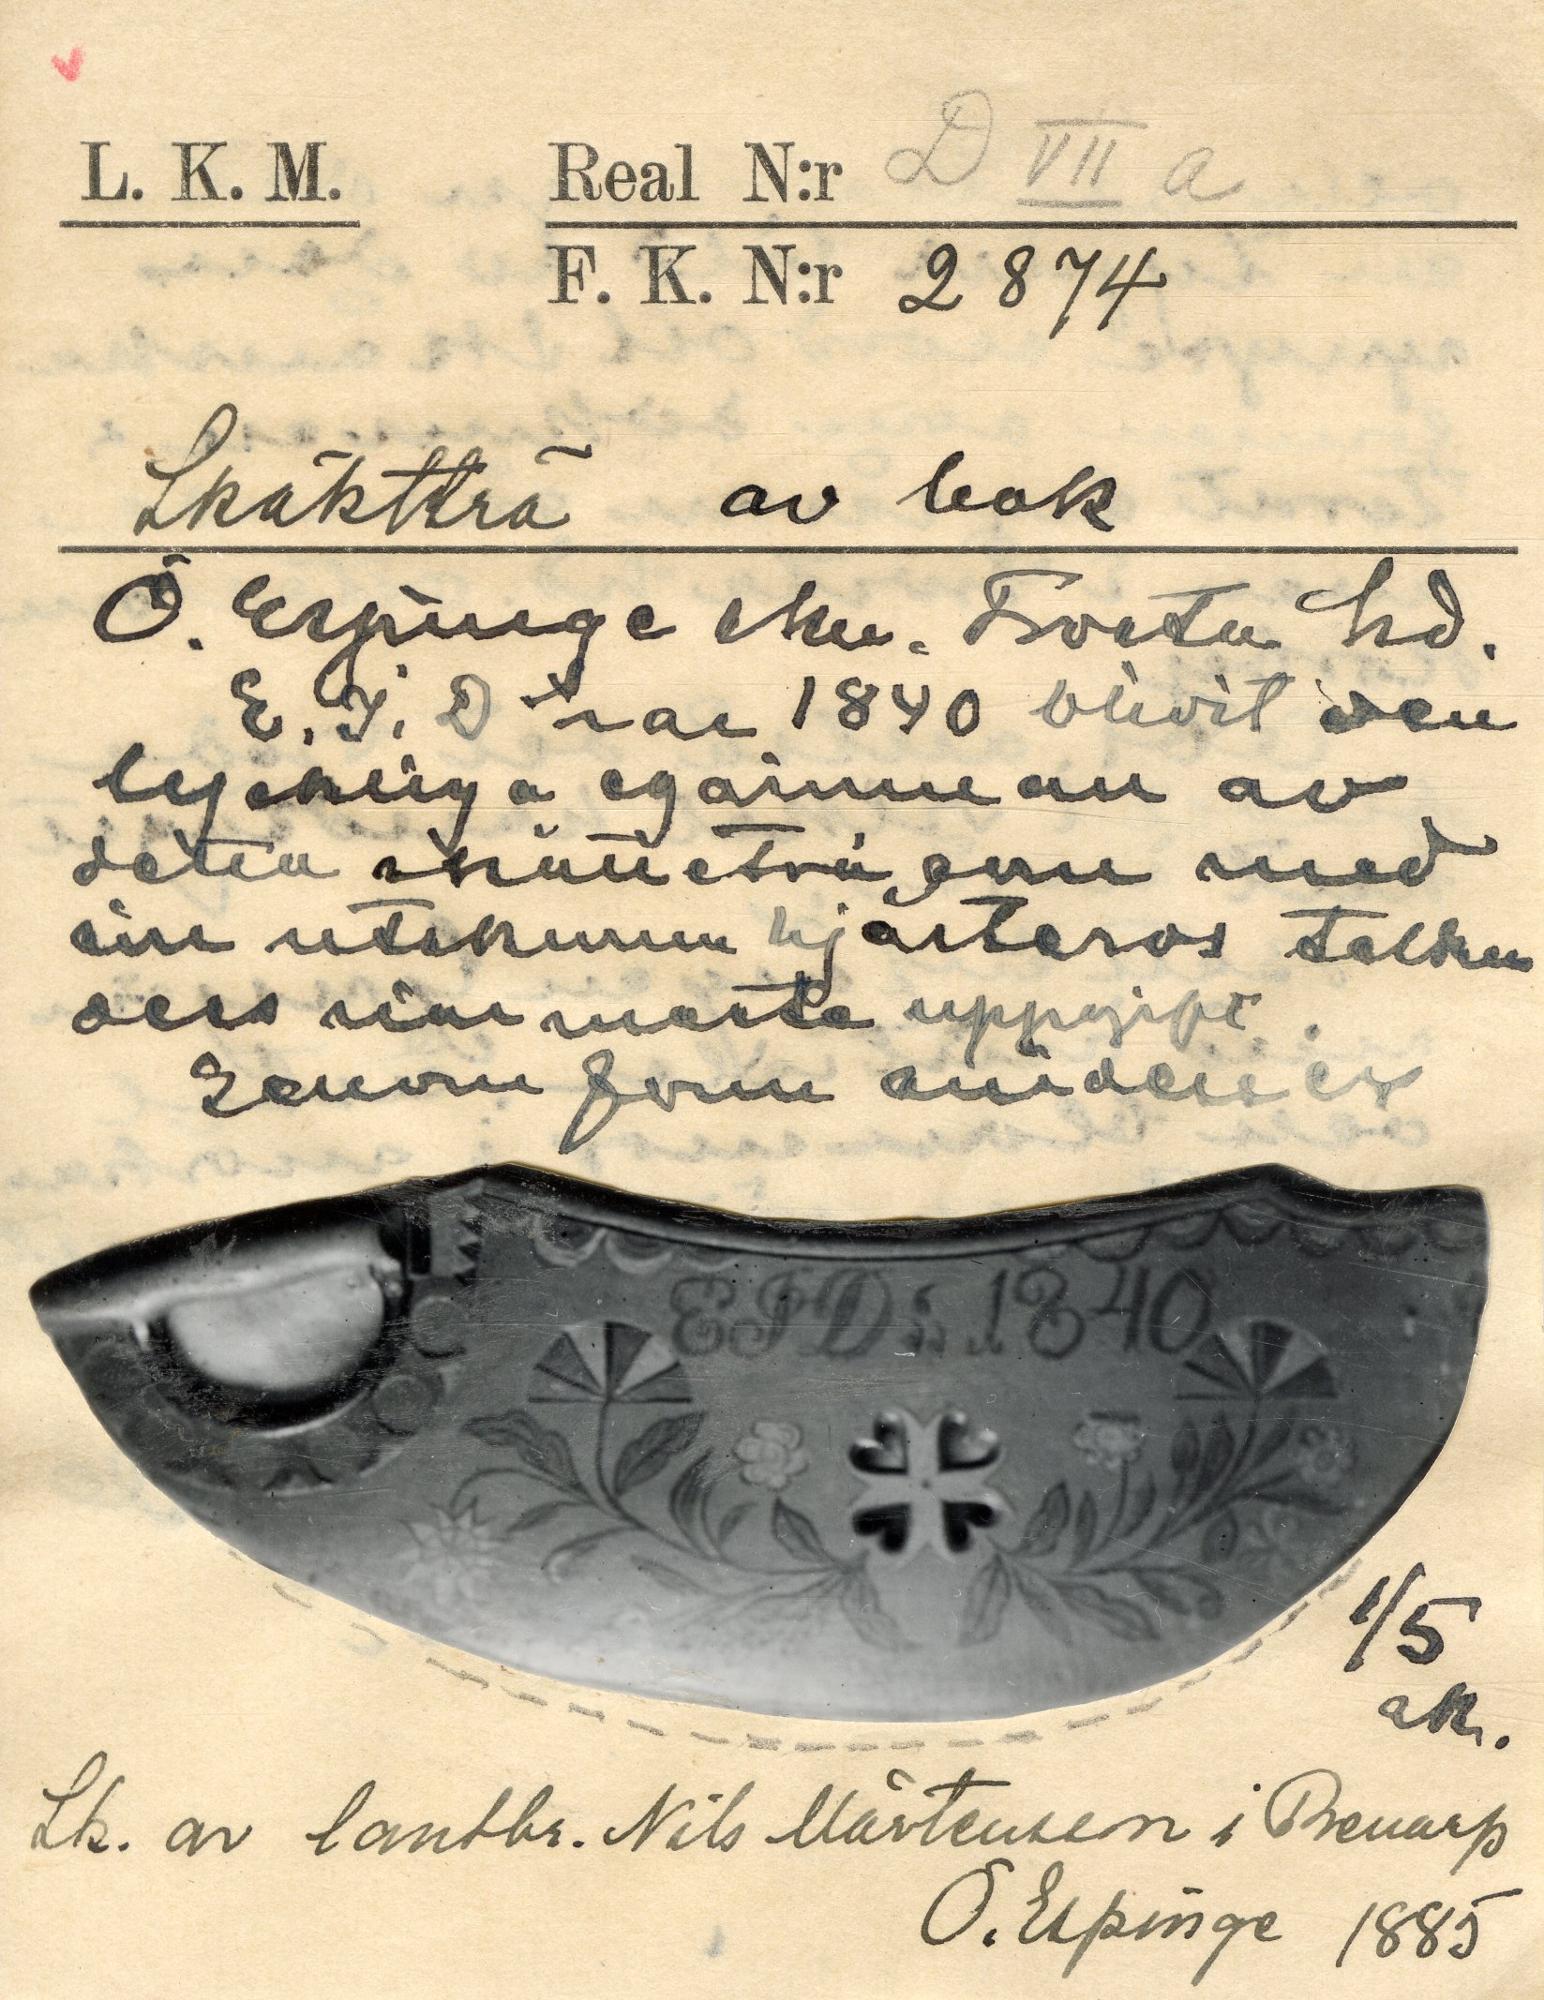 L. K. M. Real N:r D VII a
F. K. N:r 2874
Skäktträ av bok
Ö. Espinge skn. Frosta hd.
E. I. D har 1840 blivit den
lyckliga egarinnan av
detta skätteträ som med
sin utskurna hjärteros
dess närmaste uppgift.
Genom form
EID: 1840
1/5
Sk. av lantbr. Nils Mårtensson i Benarp
Ö. Espinge 1885